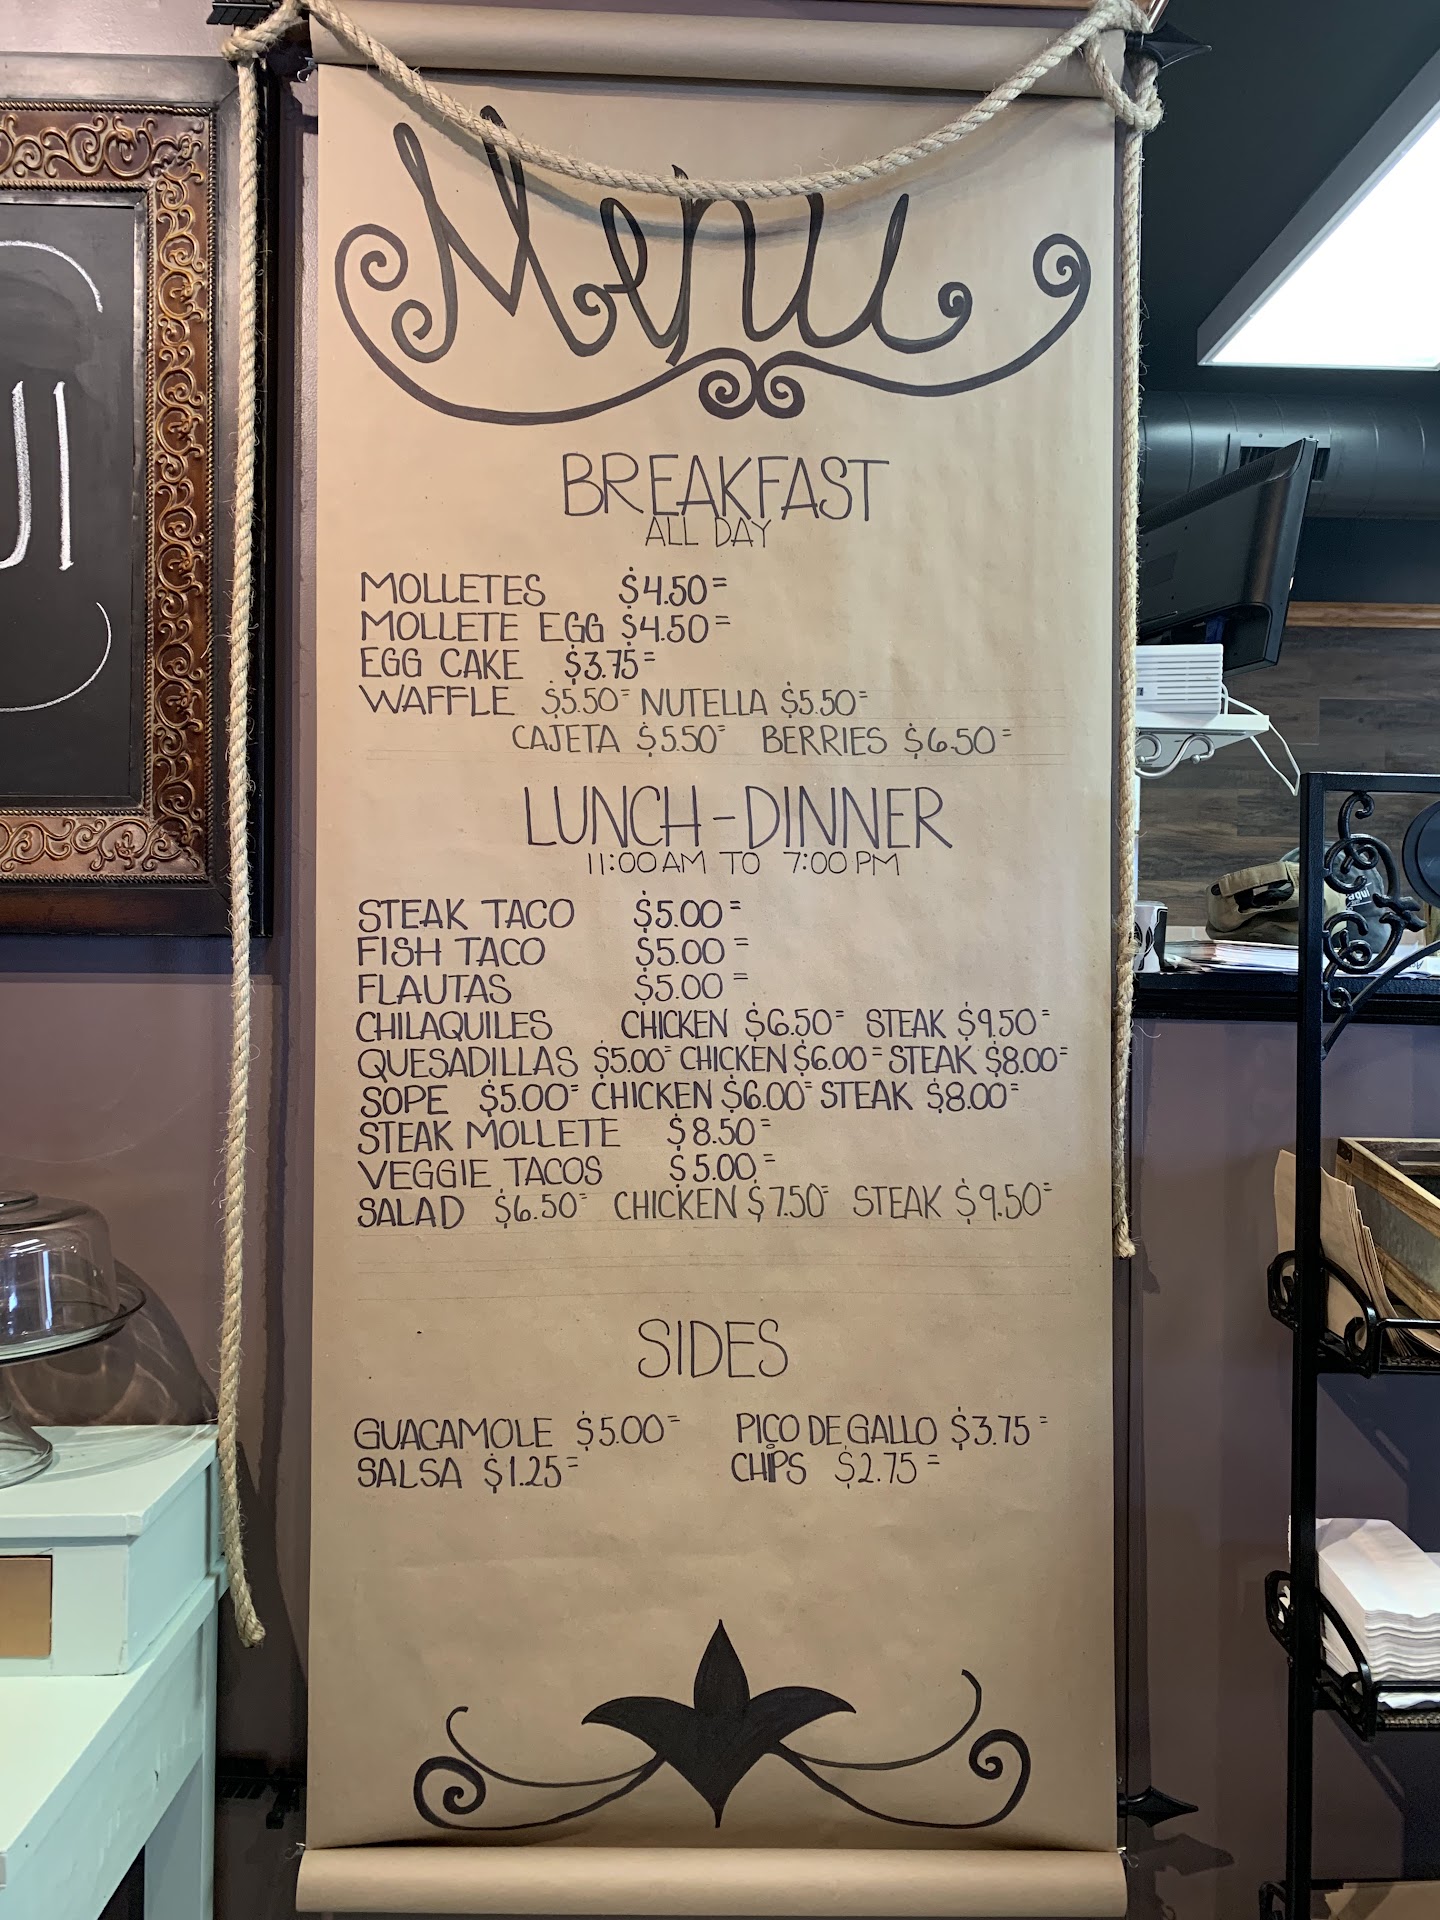 Menu
BREAKFAST
ALL DAY
MOLLETES $4.50=
MOLLETE EGG $4.50=
EGG CAKE $3.75=
WAFFLE $5.50= NUTELLA $5.50=
CAJETA $5.50= BERRIES $6.50=
LUNCH-DINNER
11:00AM TO 7:00PM
STEAK TACO $5.00=
FISH TACO $5.00=
FLAUTAS $5.00=
CHILAQUILES CHICKEN $6.50= STEAK $9.50=
QUESADILLAS $5.00= CHICKEN $6.00= STEAK $8.00=
SOPE $5.00= CHICKEN $6.00= STEAK $8.00=
STEAK MOLLETE $8.50=
VEGGIE TACOS $5.00=
SALAD $6.50= CHICKEN $7.50= STEAK $9.50=
SIDES
GUACAMOLE $5.00= PICO DE GALLO $3.75=
SALSA $1.25= CHIPS $2.75=